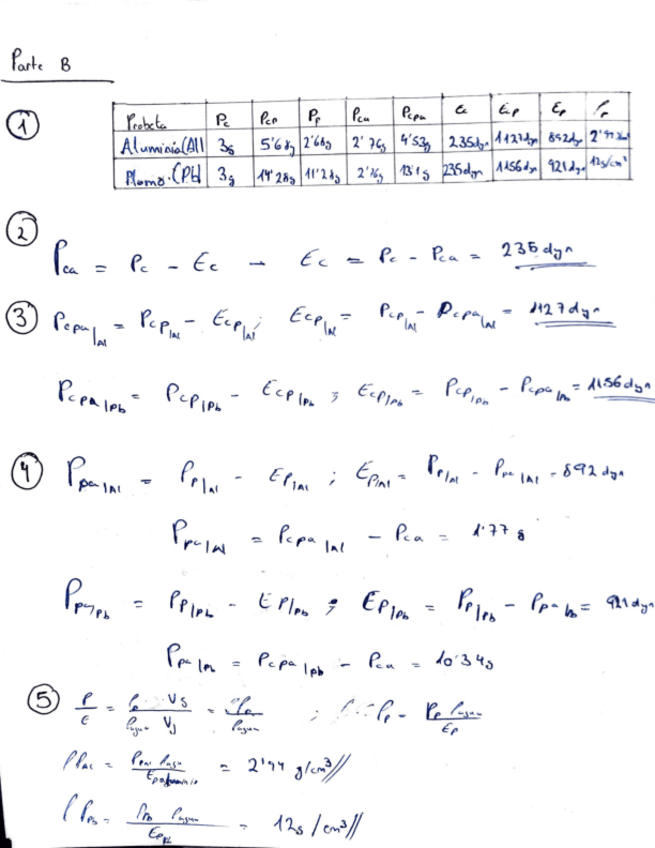 Parte B
①
Probeta Pc Pcp Pp Pca Pcpa Ec Ecp Ep ρp
Aluminio (Al) 3g 5'68g 2'68g 2'76g 4'53g 235dyn 1127dyn 892dyn
Plomo (Pb) 3g 14'28g 11'28g 2'76g 13'1g 235dyn 1156dyn 921dyn 12g/cm³
② Pca = Pc - Ec → Ec = Pc - Pca = 235 dyn
③ Pcpa|Al = Pcp|Al - Ecp|Al; Ecp|Al = Pcp|Al - Pcpa|Al = 1127 dyn
Pcpa|Pb = Pcp|Pb - Ecp|Pb ; Ecp|Pb = Pcp|Pb - Pcpa|Pb = 1156 dyn
④ Ppa|Al = Pp|Al - Ep|Al ; Ep|Al = Pp|Al - Ppa|Al = 892 dyn
Ppa|Al = Pcpa|Al - Pca = 1'77 g
Ppa|Pb = Pp|Pb - Ep|Pb ; Ep|Pb = Pp|Pb - Ppa|Pb = 921 dyn
Ppa|Pb = Pcpa|Pb - Pca = 10'34g
⑤ P/E =
= 2'94 g/cm³//
= 12g/cm³//